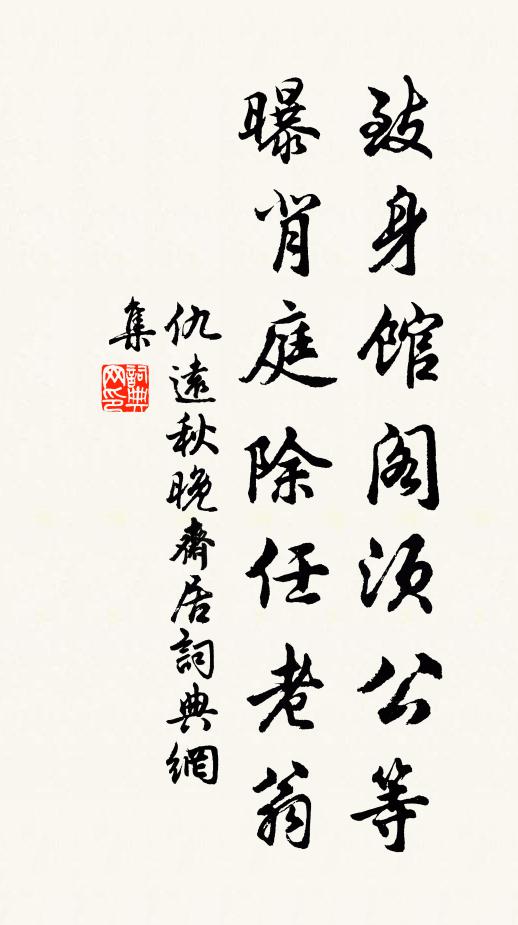 致身館閣須公等
曝背庭除任老翁
仇遠秋晚齋居詞典網
集
詞典
网印